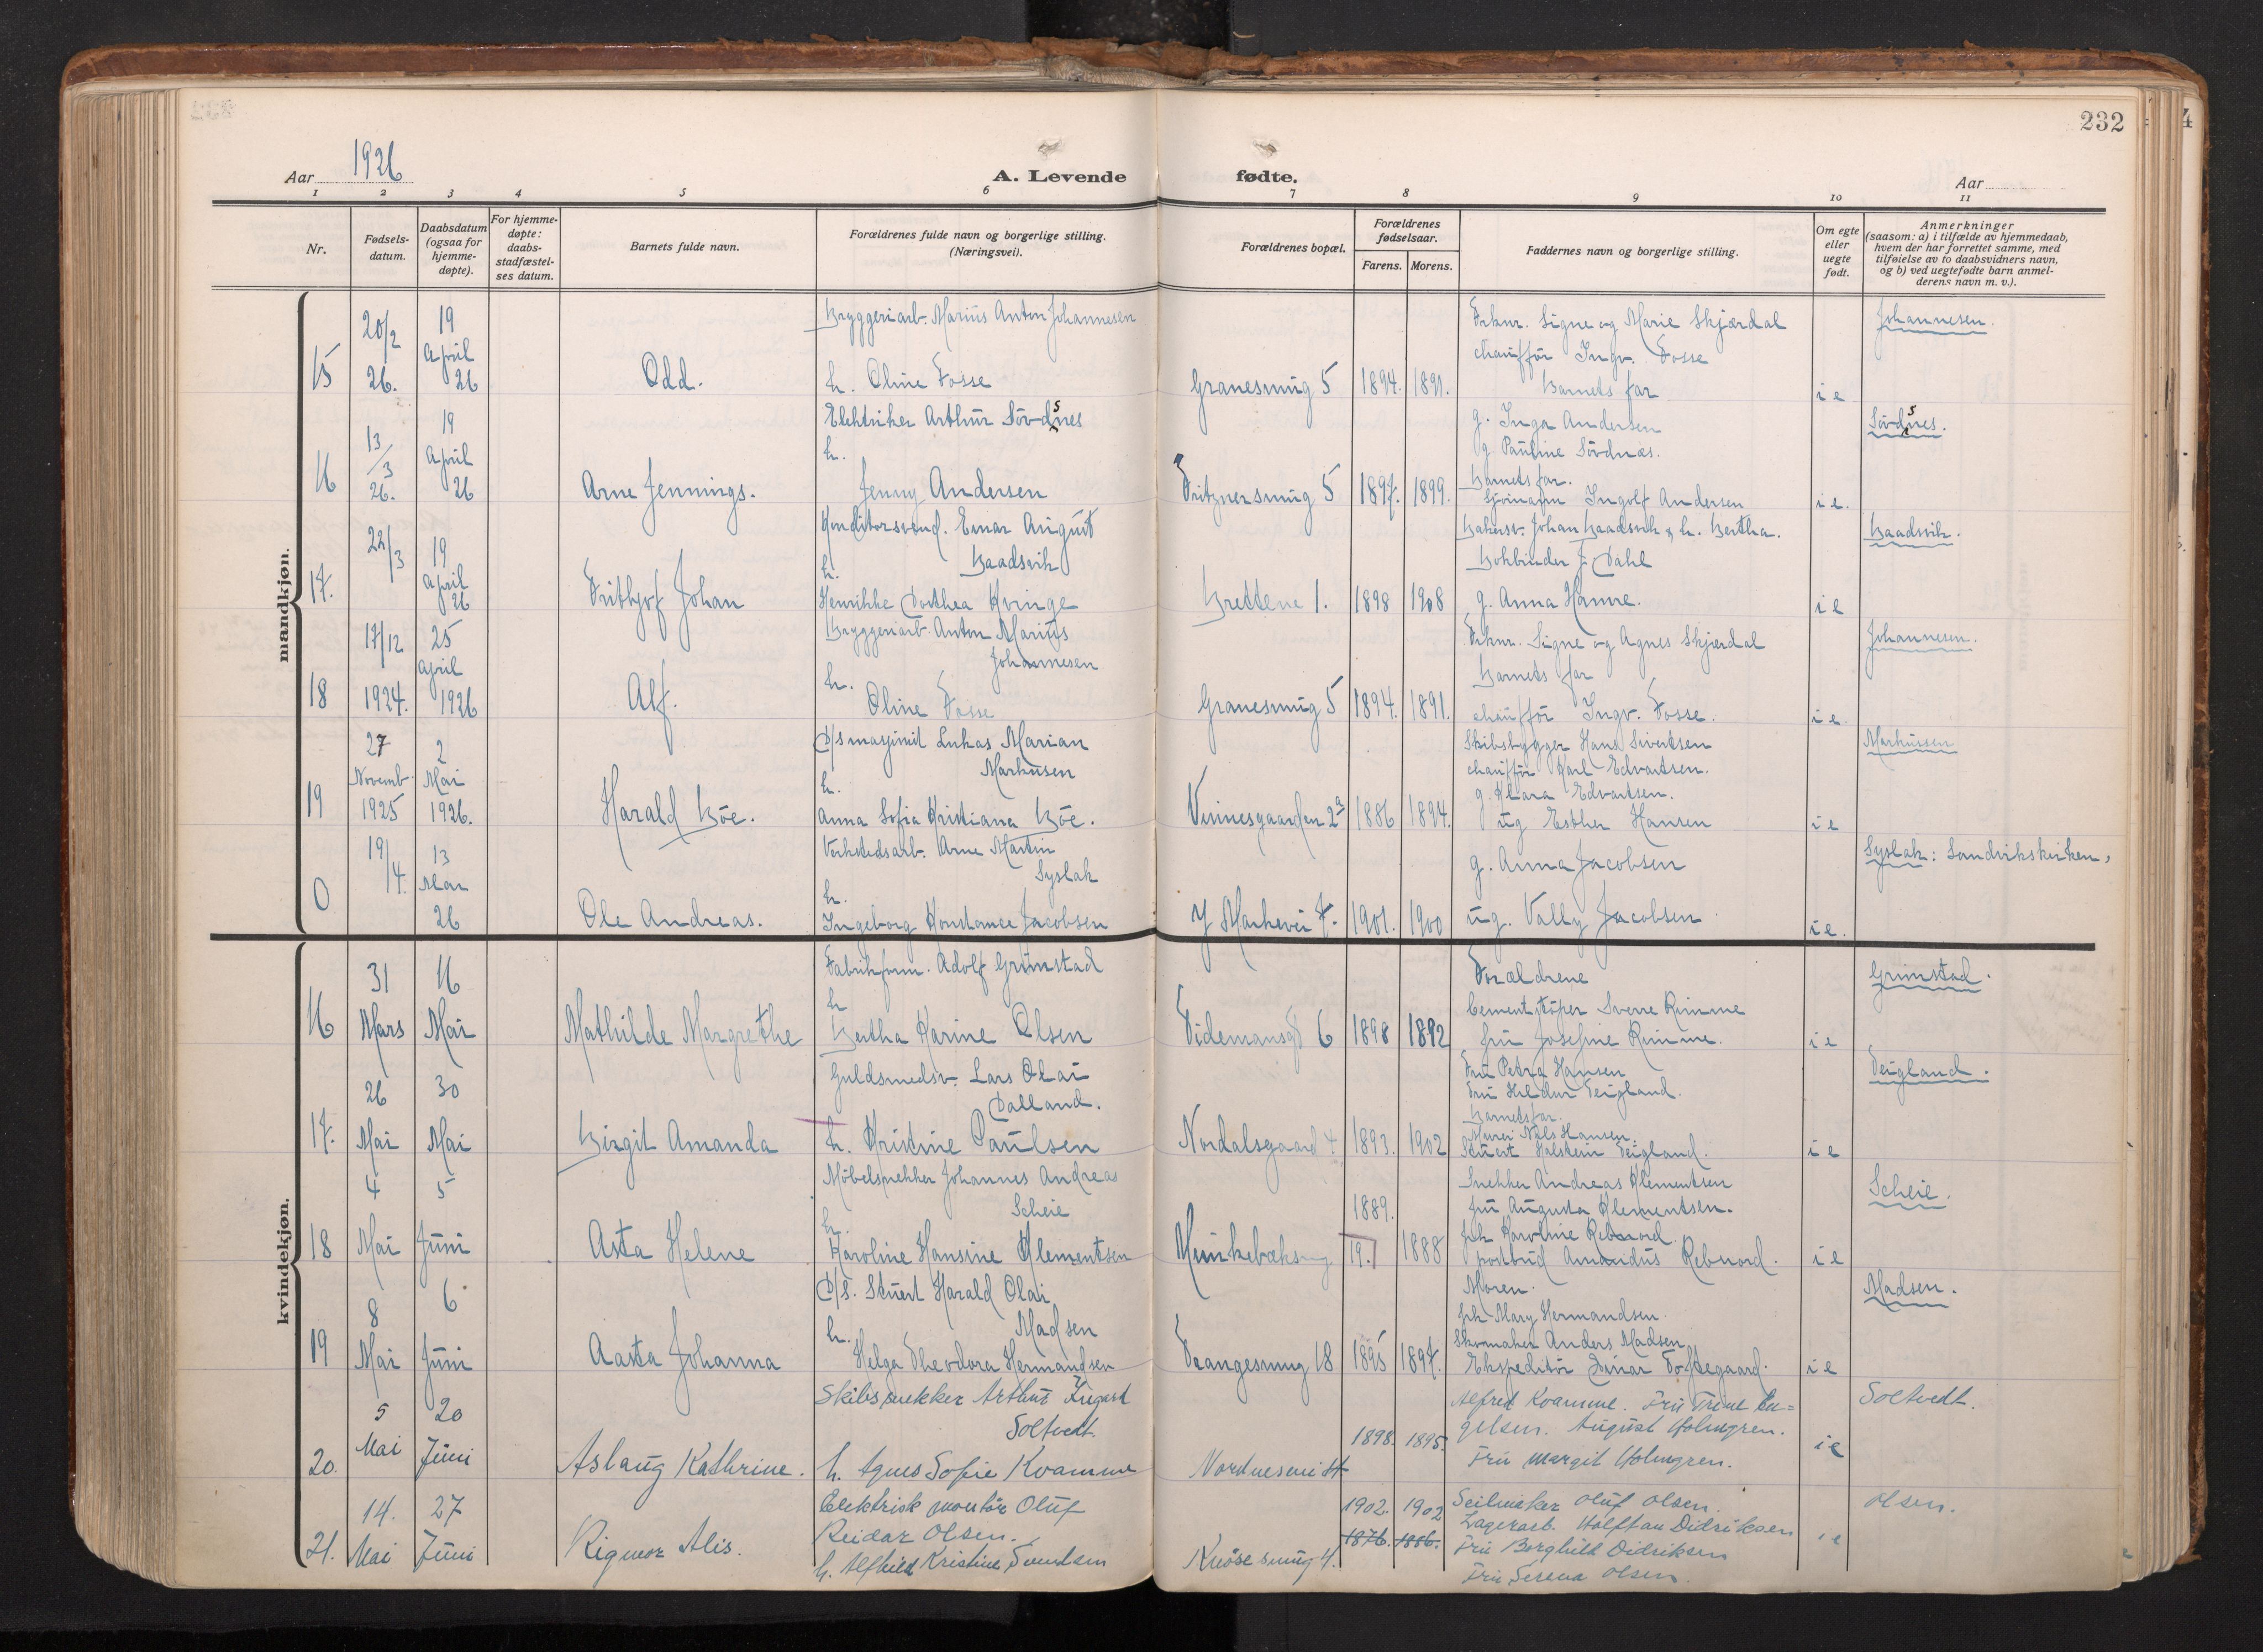 232
Aar 1926
A. Levende fødte.
Aar
1 2 3 4 5 6 7 8 9 10 11
Nr.
Fødsels-
datum.
Daabsdatum
(ogsaa for
hjemme-
døpte).
For hjemme-
døpte:
daabs-
stadfæstel-
ses datum.
Barnets fulde navn.
Forældrenes fulde navn og borgerlige stilling.
(Næringsvei).
Forældrenes bopæl.
Forældrenes
fødselsaar.
Farens. Morens.
Faddernes navn og borgerlige stilling.
Om egte
eller
uegte
født.
Anmerkninger
(saasom: a) i tilfælde av hjemmedaab,
hvem der har forrettet samme, med
tilføielse av to daabsvidners navn,
og b) ved uegtefødte barn anmel-
derens navn m. v.).
mandkjøn.
15
20/2
26.
19
april
26
Odd.
Bryggeriarb. Marius Anton Johannesen
h. Oline Fosse
Granesmug 5
1894. 1891.
Frknr. Signe og Marie Skjærdal
chauffør Ingv. Fosse
Barnets far
i e
Johannesen.
16
13/3
26.
19
april
26
Arne Jennings.
Elektriker Arthur Sövdsnes
h.
Jenny Andersen
Fritznersmug 5
1897. 1899.
g. Inga Andersen
g. Pauline Sövdnæs.
Barnets far.
Sjömann Ingolf Andersen
i e.
Sövdsnes.
17.
22/3
19
april
26
Frithjof Johan
Konditorsvend. Einar August
h. Baadsvik
Henrikke Dorthea Kvinge
Brettene 1.
1898 1908
Bakersv. Johan Baadsvik & h. Bertha.
Bokbinder J. Dahl
g. Anna Hamre.
i e
Baadsvik.
18
17/12
1924.
25
april
1926
Alf.
Bryggeriarb. Anton Marius
Johannesen
h.
Oline Fosse
Granesmug 5
1894. 1891.
Frknr. Signe og Agnes Skjærdal
Barnets far
chauffør Ingv. Fosse.
i e
Johannesen.
19
27
Novemb.
1925
2
Mai
1926.
Harald Böe.
D/s masjinist Lukas Marian
Markusen
h.
Anna Sofia Kristiana Böe.
Vinnesgaarden 2a
1886 1894.
Skibsbygger Hans Sivertsen
chaufför Karl Edvartsen.
g. Klara Edvartsen.
ug Esther Hansen
i e
Markussen
0
19/4.
13
Mai
26
Ole Andreas.
Verkstedsarb. Arne Martin
Syslak
h.
Ingeborg Konstance Jacobsen
Y Markevei 7.
1901. 1900
g. Anna Jacobsen
ug. Vally Jacobsen
i e.
Syslak: Sandvikskirken,
kvindekjøn.
16
31
Mars
16
Mai
Mathilde Margrethe
Fabrikform. Adolf Grimstad
h
Bertha Karine Olsen
Videmansgt 6
1898 1892
Forældrene
Cementstöper Sverre Rimme
fru Josefine Rimme.
i e
Grimstad.
17.
26
Mai
30
Mai
Birgit Amanda
Guldsmedsv. Lars Olai
Dalland.
h. Kristine Paulsen
Nordalsgaard 4
1893. 1902
Fru Petra Hansen
Fru Hildur Teigland.
Barnets far.
Murer Nils Hansen.
Stuert Halstein Teigland.
i e
Teigland.
18
4
Mai
5
Juni
Asta Helene
Möbelsnekker Johannes Andreas
Scheie
h.
Karoline Hansine Klementsen
Munkebæksmug 19.
1889. 1888
Snekker Andreas Klementsen
fru Augusta Klementsen.
frk Karoline Rebnord.
postbud Amandus Rebnord.
i e
Scheie.
19
8
Mai
6
Juni
Aasta Johanna
D/S. Stuert Harald Olai
Madsen
h.
Helga Theodora Hermandsen
Trangesmug 18
1895 1897.
Moren.
frk Mary Hermandsen.
Skomaker Anders Madsen
Ekspeditör Einar Toftegaard.
i e
Madsen.
20.
5
Mai
20
Juni
Aslaug Kathrine.
Skibssnekker Arthur
Soltvedt
h. Agnes Sofie Kvamme
1898. 1895.
Alfred Kvamme. Fru Trine En=
gelsen. August Holmgren.
Fru Margit Holmgren.
i e
Soltvedt.
21.
14.
Mai
27
Juni
Rigmor Alis.
Elektrisk montör Oluf
Reidar Olsen.
h. Alfhild Kristine Svendsen
Knösesmug 4.
1902. 1902
1876. 1886.
Seilmaker Oluf Olsen.
Lagerarb. Halftan Didriksen
Fru Borghild Didriksen
Fru Serena Olsen.
i e
Olsen.